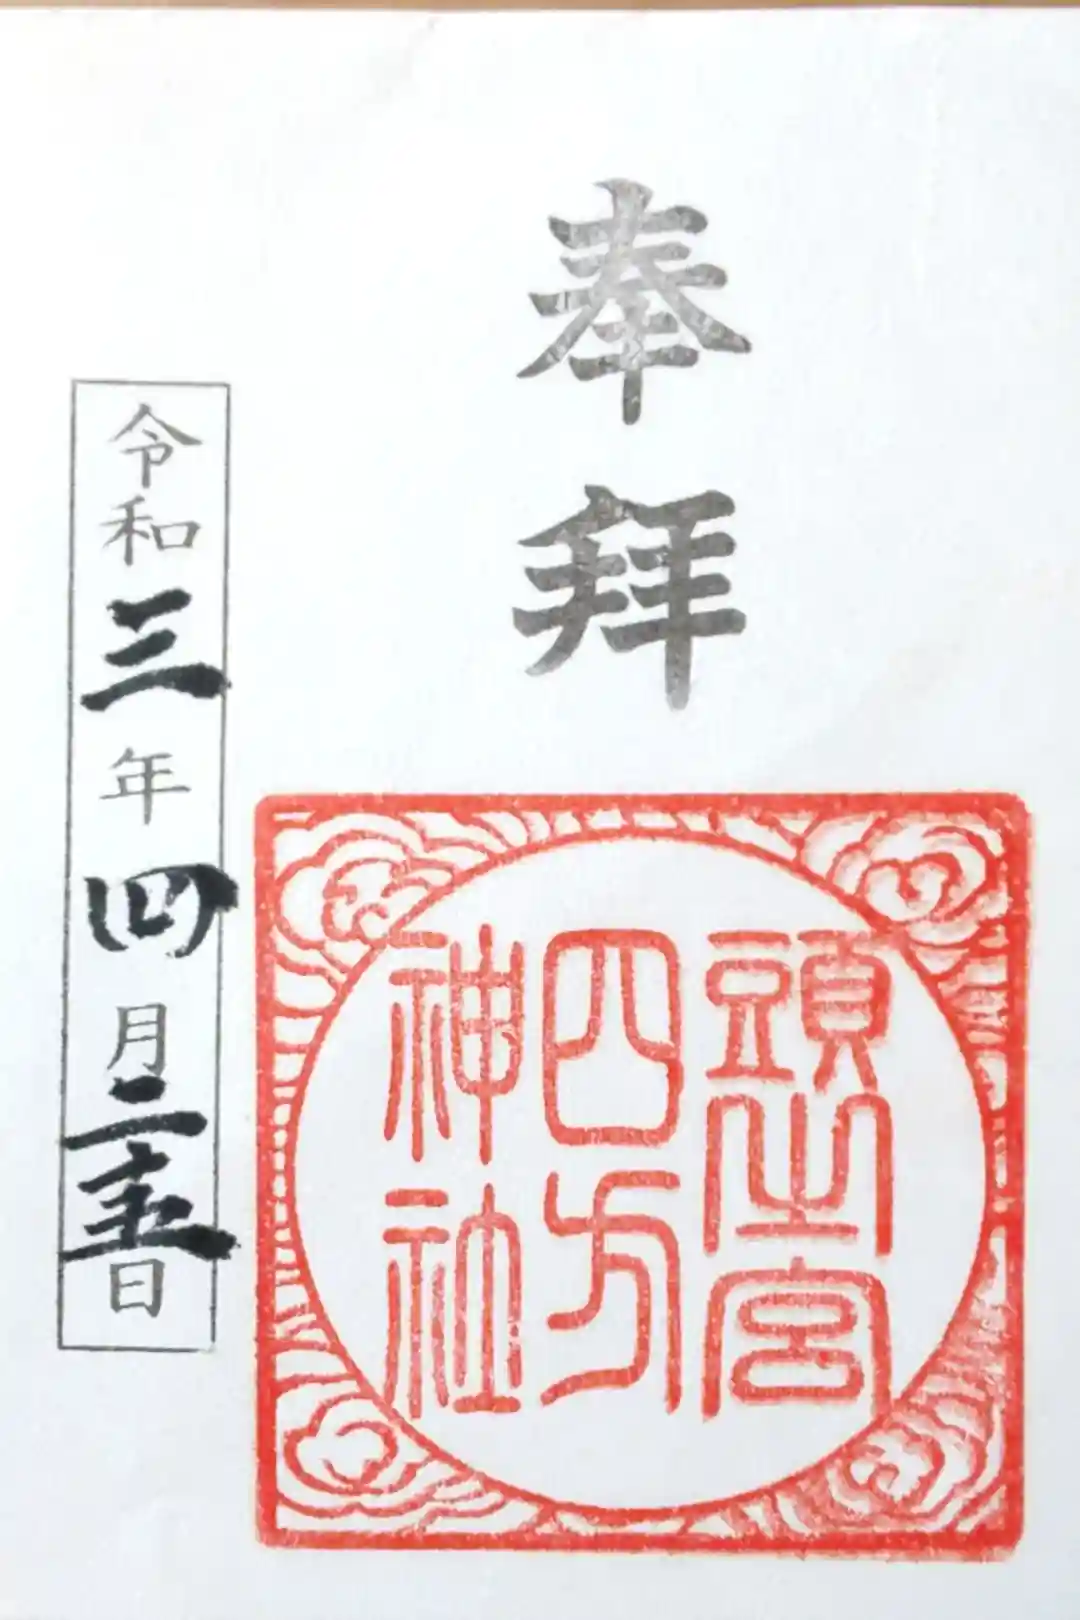 奉拝
頭之宮
四方
神社
令和三年四月二十五日